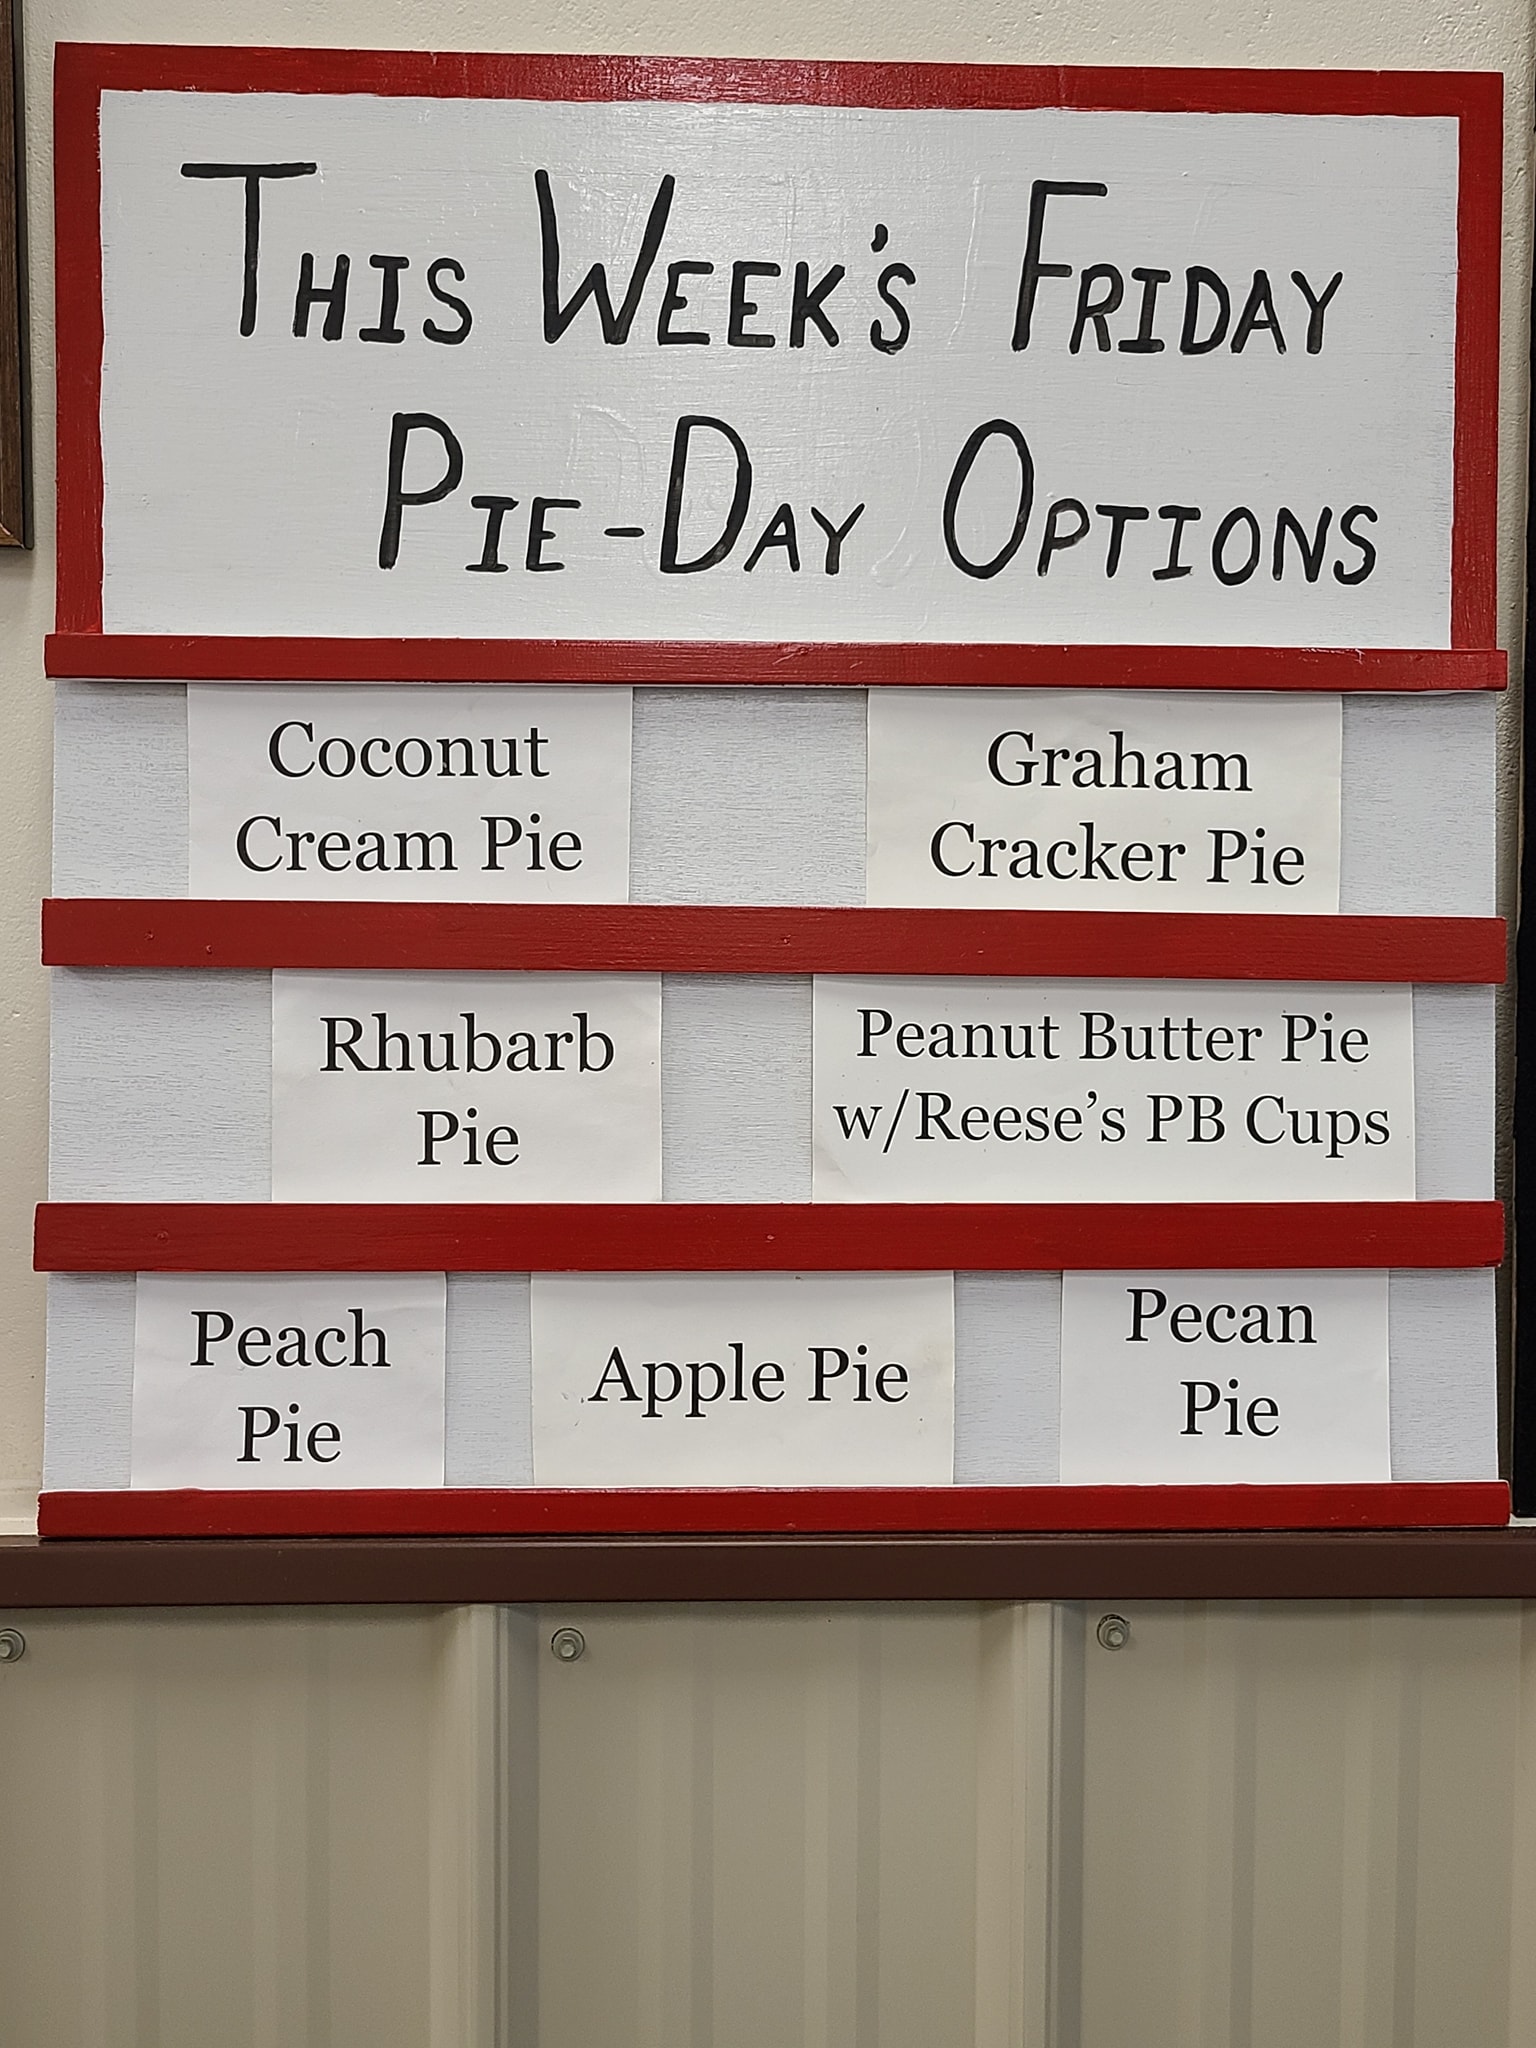 This Week's Friday
Pie-Day Options
Coconut
Cream Pie
Graham
Cracker Pie
Rhubarb
Pie
Peanut Butter Pie
w/Reese's PB Cups
Peach
Pie
Apple Pie
Pecan
Pie